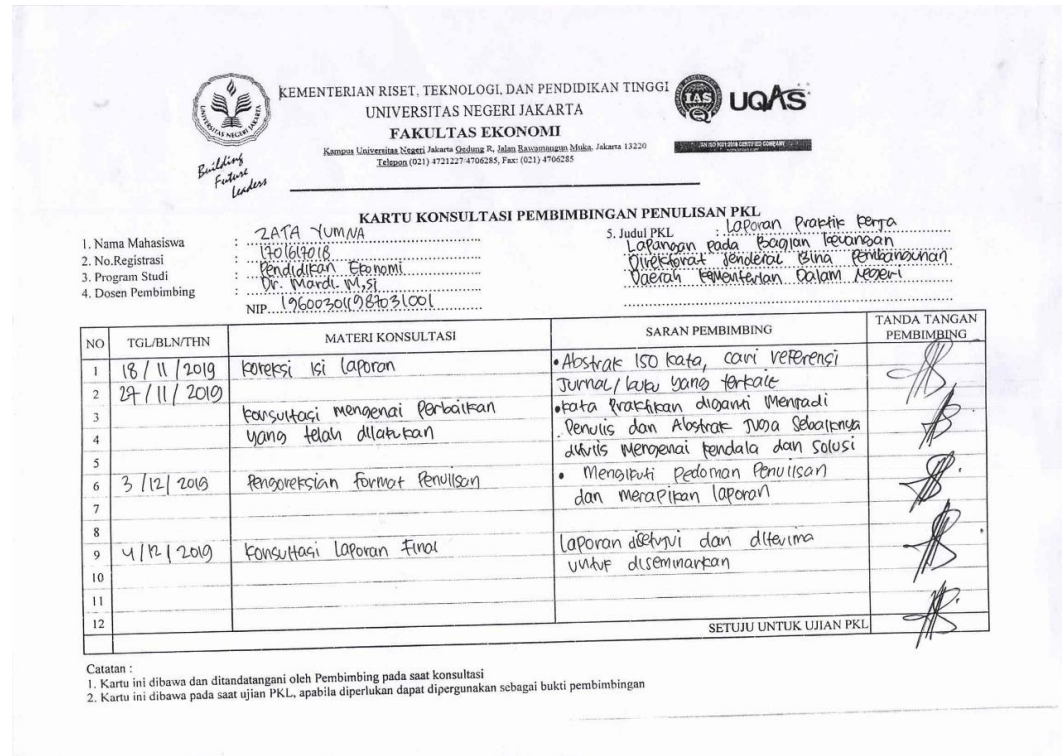 KEMENTERIAN RISET, TEKNOLOGI, DAN PENDIDIKAN TINGGI
UNIVERSITAS NEGERI JAKARTA
FAKULTAS EKONOMI
Kampus Universitas Negeri Jakarta Gedung R, Jalan Rawamangun Muka, Jakarta 13220
Telepon (021) 4721227/4706285, Fax: (021) 4706285
UNIVERSITAS NEGERI JAKARTA
Building
Future
Leaders
IAS
UQAS
KARTU KONSULTASI PEMBIMBINGAN PENULISAN PKL
1. Nama Mahasiswa : ZATA YUMNA
2. No.Registrasi : 1701617018
3. Program Studi : Pendidikan Ekonomi
4. Dosen Pembimbing : Dr. Mardi. M,si
NIP. 196003011987031001
5. Judul PKL : Laporan Praktik Kerja
Lapangan pada Bagian Keuangan
Direktorat Jenderal Bina Pembangunan
Daerah Kementerian Dalam Negeri
NO TGL/BLN/THN MATERI KONSULTASI SARAN PEMBIMBING TANDA TANGAN PEMBIMBING
1 18 / 11 / 2019 Koreksi isi laporan • Abstrak 150 kata, cari referensi
2 27 / 11 / 2019 Jurnal / buku yang terkait
3 Konsultasi mengenai Perbaikan • kata Praktikan diganti Menjadi
4 yang telah dilakukan Penulis dan Abstrak Juga Sebaiknya
5 ditulis Mengenai kendala dan Solusi
6 3 / 12 / 2019 Pengoreksian Format Penulisan • Mengikuti Pedoman Penulisan
7 dan merapikan laporan
8
9 4 / 12 / 2019 Konsultasi Laporan Final Laporan disetujui dan diterima
10 untuk diseminarkan
11
12
SETUJU UNTUK UJIAN PKL
Catatan :
1. Kartu ini dibawa dan ditandatangani oleh Pembimbing pada saat konsultasi
2. Kartu ini dibawa pada saat ujian PKL, apabila diperlukan dapat dipergunakan sebagai bukti pembimbingan